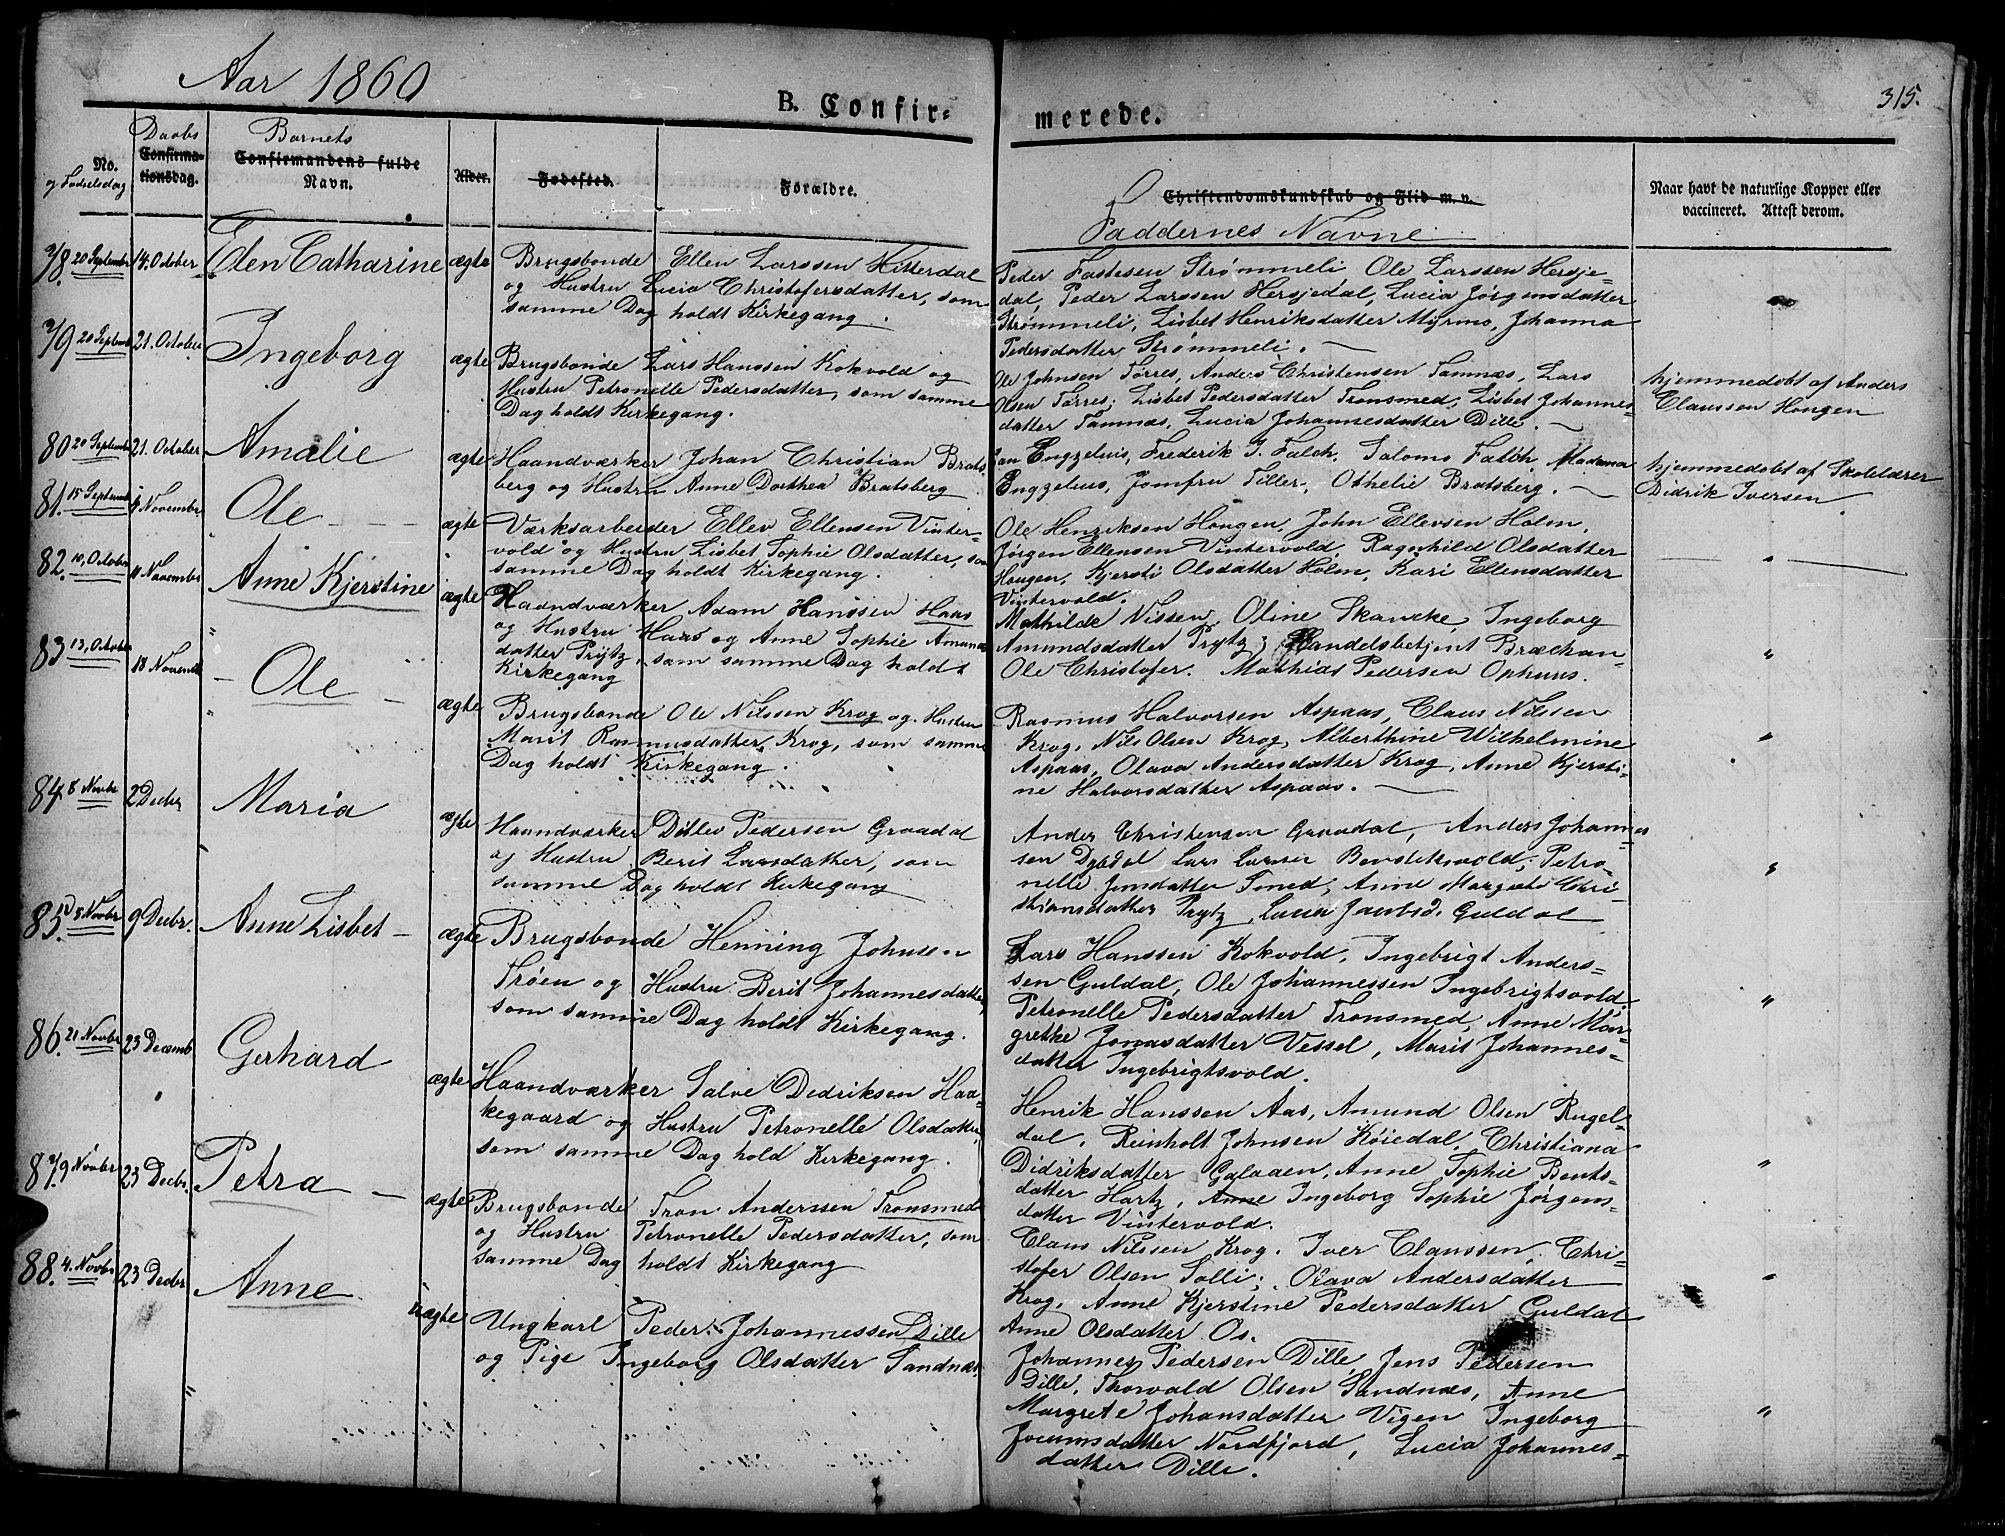 Aar 1860
B. Confir-
merede.
315.
No. og Fødselsdag
Daabs
Confirma-
tionsdag.
Barnets
Confirmandens fulde
Navn.
Alder.
Fødested.
Forældre.
Christendomskundskab og Flid m. v.
Faddernes Navne
Naar havt de naturlige Kopper eller
vaccineret. Attest derom.
78. 20 September 14. October Elen Catharine ægte
Brugsbonde Ellen Larssen Hitterdal
og Hustru Lucia Christofersdatter, som
samme Dag holdt Kirkegang.
Peder Fastesen Strømmeli Ole Larssen Hersje-
dal, Peder Larssen Hersjedal, Lucia Jørgensdatter
Strømmeli, Lisbet Henriksdatter Myrmo, Johanna
Pedersdatter Strømmeli.
79 20 Septemb 21. October Ingeborg ægte
Brugsbonde Lars Hanssen Kokvold og
Hustru Petronelle Pedersdatter, som samme
Dag holdt Kirkegang.
Ole Johnsen Torres, Anders Christensen Tamnæs, Lars
Olsen Torres; Lisbet Pedersdatter Tronsmed, Lisbet Johannes-
datter Tamnæs, Lucia Johannesdatter Dille.
hjemmedøbt af Anders
Claussen Hongen
80 20 Septemb 21. October Amalie ægte
Haandværker Johan Christian Brats-
berg og Hustru Anne Dorthea Bratsberg
Jan Engzelius, Frederik J. Falch, Salomo Falch, Madama
Engzelius, Jomfru Tiller, Othelie Bratsberg.
hjemmedøbt af Skolelærer
Didrik Iversen
81. 15 Septemb 4 November Ole ægte
Værksarbeider Ellev Ellensen Vinter-
vold og Hustru Lisbet Sophie Olsdatter, som
samme Dag holdt Kirkegang.
Ole Henriksen Hongen, John Ellevsen Holm,
Jørgen Ellensen Vintervold, Ragnhild Olsdatter
Hougen, Kjersti Olsdatter Holm, Kari Ellensdatter
Vintervold.
82. 10, October 11 November Anne Kjerstine ægte
Haandværker Adam Hanssen Haas
og Hustru Haas og Anne Sophie Amunds
datter Prytz, som samme Dag holdt
Kirkegang
Mathilde Nissen, Oline Skancke, Ingeborg
Amundsdatter Prytz; Handelsbetjent Bræchan
Ole Christofer. Mathias Pedersen Ophuus.
83 13, October 18 November Ole ægte
Brugsbonde Ole Nilssen Krog og Hustru
Marit Rasmusdatter Krog, som samme
Dag holdt Kirkegang.
Rasmus Halvorsen Aspaas, Claus Nilssen
Krog, Nils Olsen Krog, Alberthine Wilhelmine
Aspaas, Olava Andersdatter Krog, Anne Kjersti-
ne Halvorsdatter Aspaas.
84. 8 Novbr 2 Decbr Maria ægte
Haandværker Ditlev Pedersen Graadal
og Hustru Berit Larsdatter, som
samme Dag holdt Kirkegang
Ander Christensen Graadal, Anders Johannes
sen Dybdal Lars Larsen Bendiktsvold; Petro-
nelle Jensdatter Smed, Anne Margrete Chri-
stiansdatter Prytz, Lucia Jacobsd. Guldal
85. 8 Novbr 9 Decbr. Anne Lisbet ægte
Brugsbonde Henning Johnsen
Trøen og Hustru Berit Johannesdatter,
som samme Dag holdt Kirkegang.
Lars Hanssen Kokvold, Ingebrigt Anders-
sen Guldal, Ole Johannessen Ingebrigtsvold,
Petronelle Pedersdatter Tronsmed, Anne Mar-
grethe Jonasdatter Vessel, Marit Johannes-
datter Ingebrigtsvold.
86. 21 Novbr 23 Decemb Gerhard ægte
Haandværker Salve Dedriksen Haa-
kegaard og Hustru Petronelle Olsdatter
som samme Dag hold Kirkegang.
Henrik Hanssen Aas, Amund Olsen Rugel-
dal, Reinholt Johnsen Køiedal, Christiana
Didriksdatter Galaaen, Anne Sophie Bents-
datter Hartz, Anne Ingeborg Sophie Jørgens-
datter Vintervold.
87. 9 Novbr 23 Decbr. Petra ægte
Brugsbonde Tron Anderssen Tronsmed
og Hustru Petronelle Pedersdatter, som
samme Dag holdt Kirkegang
Claus Nilssen Krog. Iver Claussen, Chri-
stofer Olsen Solli; Olava Andersdatter
Krog, Anne Kjerstine Pedersdatter Guldal
Anne Olsdatter Os.
88. 4. Novbr 23 Decbr Anne uægte
Ungkarl Peder Johannessen Dille
og Pige Ingeborg Olsdatter Sandnæs.
Johannes Pedersen Dille, Jens Pedersen
Dille, Thorvald Olsen Sandnæs, Anne
Margrete Johansdatter Vigen Ingeborg
Jocumsdatter Nordfjord, Lucia Johannes-
datter Dille.